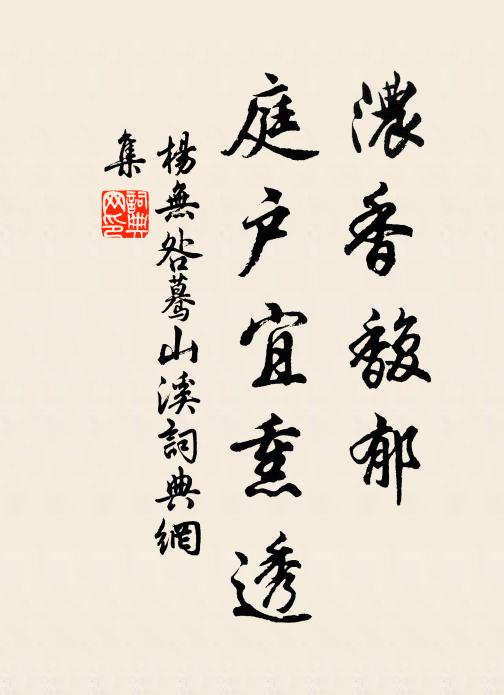 濃香馥郁
庭户宜熏透
楊無咎驀山溪詞典網
集
詞典網印